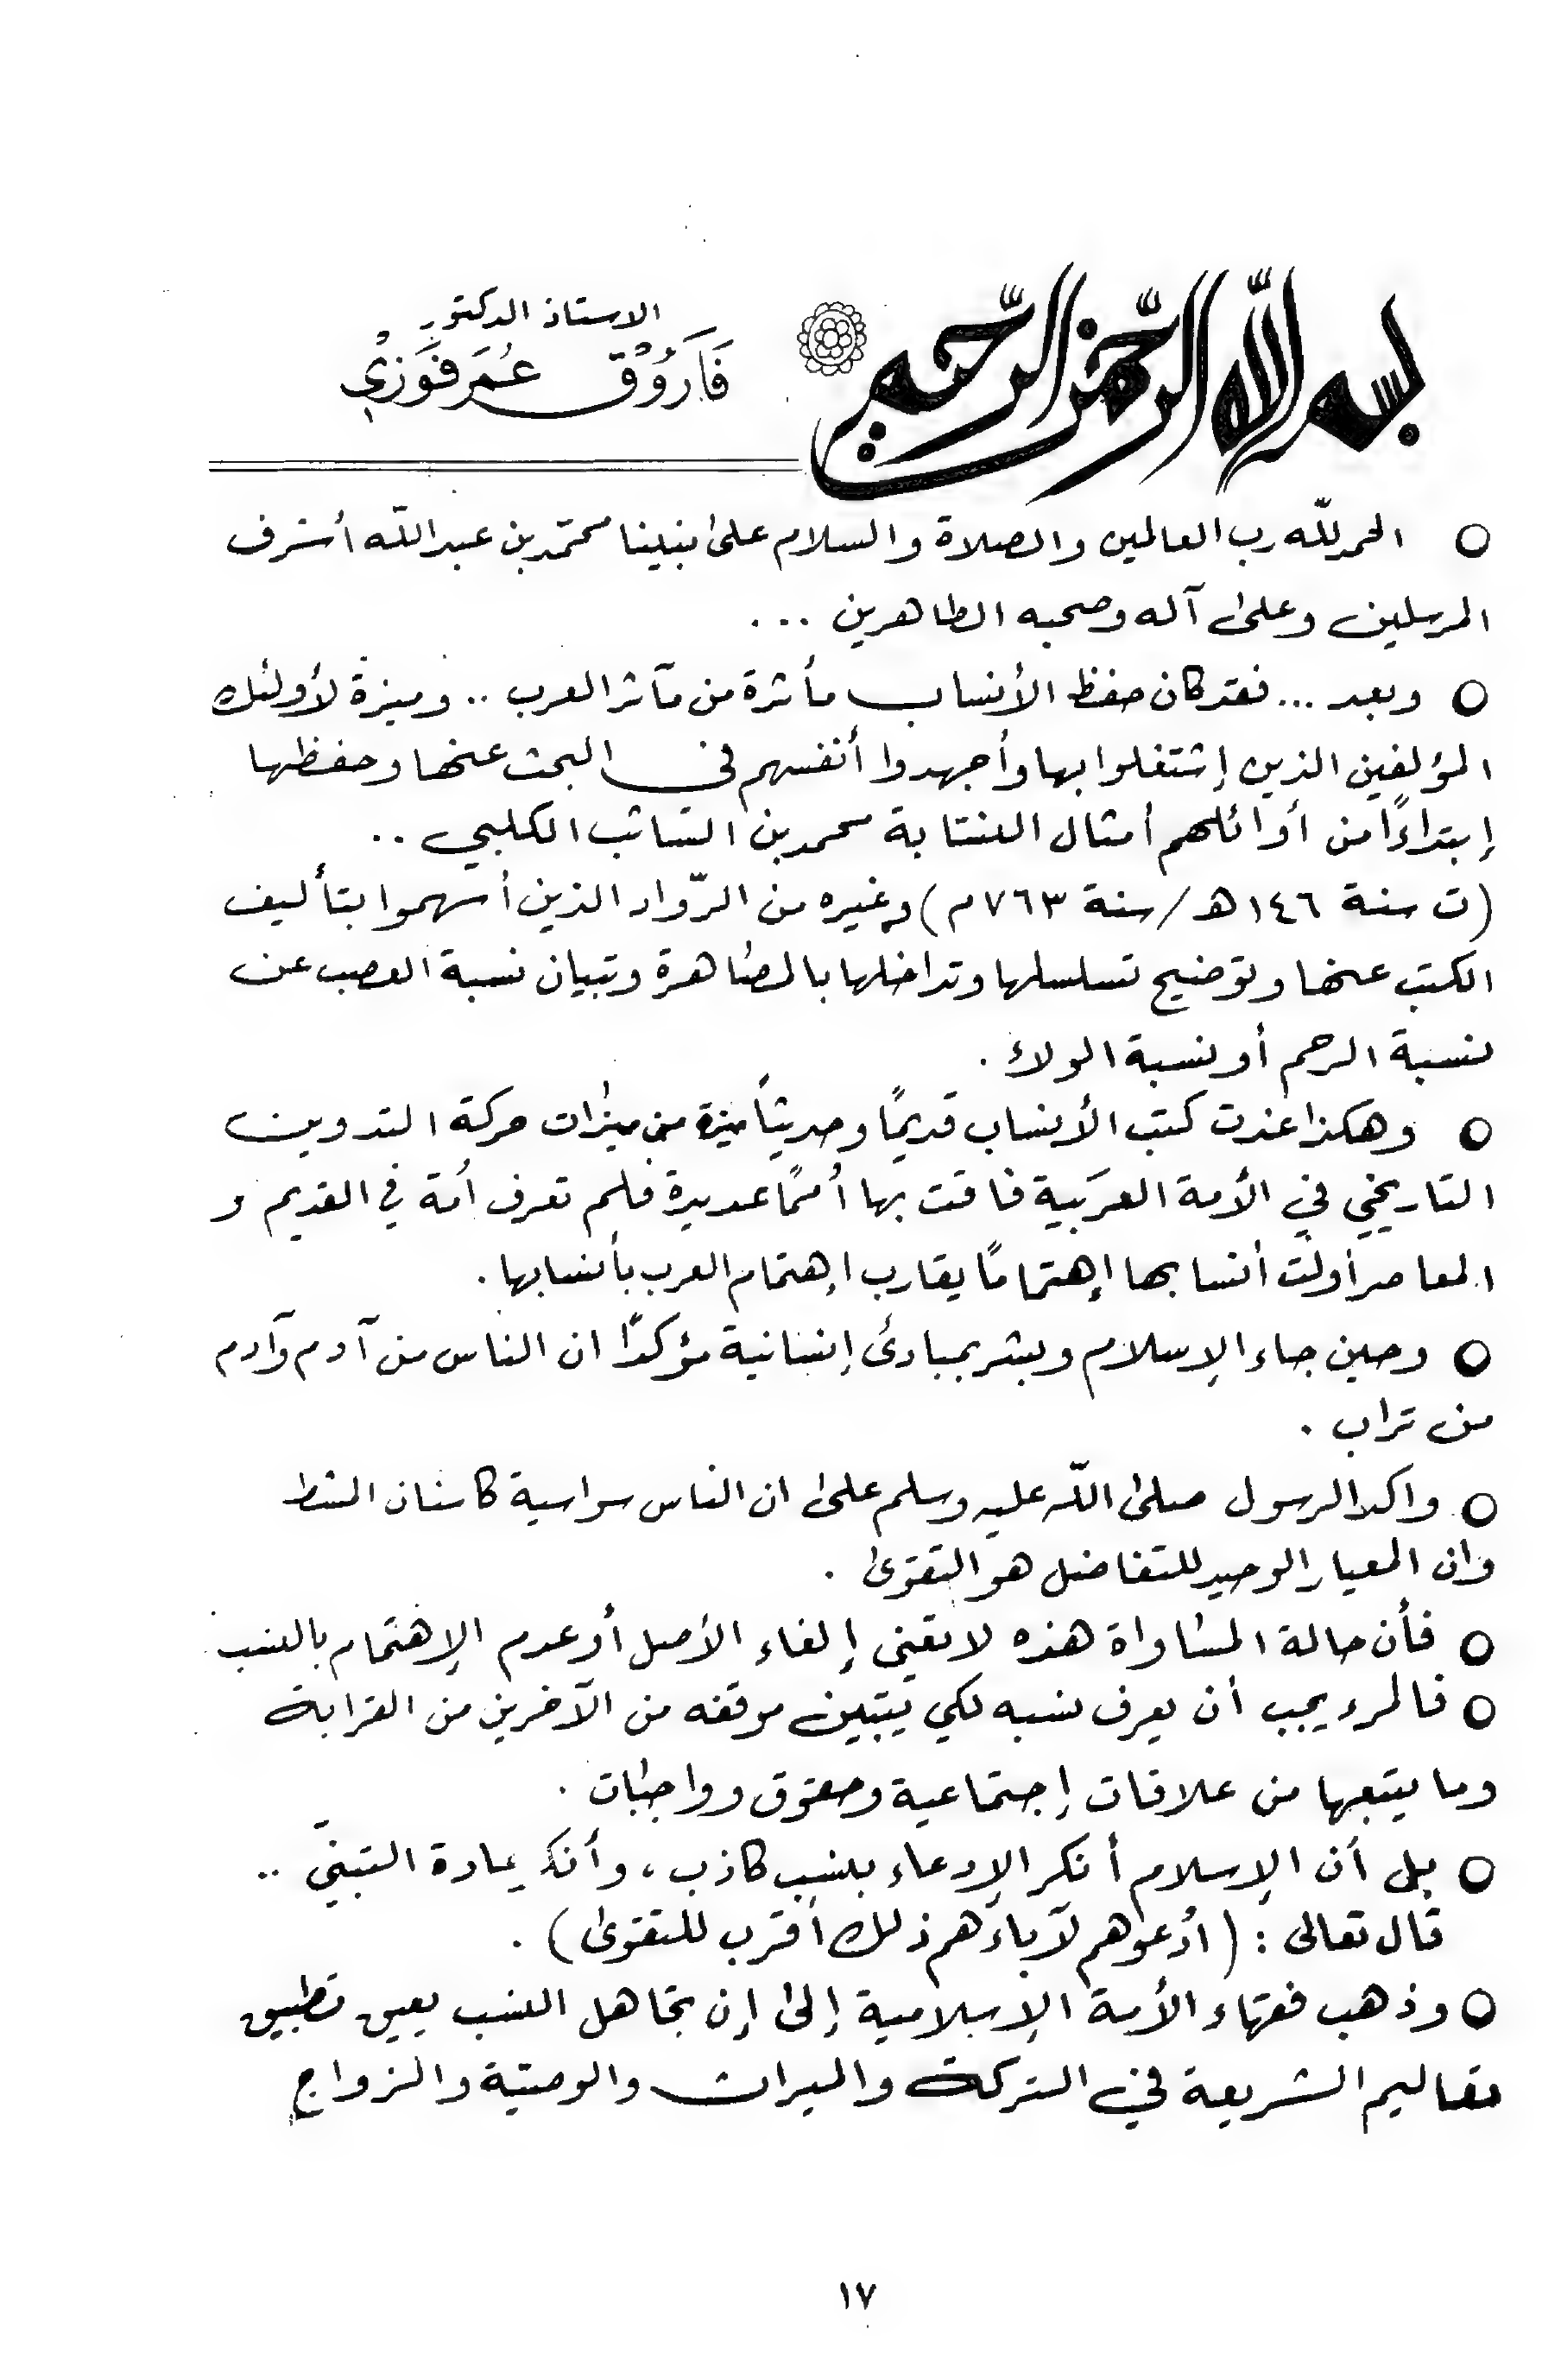 بسم الله الرحمن الرحيم
الاستاذ الدكتور
فَارُوْق عُمَر فَوَزيْ
○ الحمد لله رب العالمين والصلاة والسلام على نبينا محمّد بن عبد الله أشرف
المرسلين وعلى آله وصحبه الطاهرين ...
○ وبعد ... فقد كان حفظ الأنساب مأثرة من مآثر العرب .. وميزة لأولئك
المؤلفين الذين إشتغلوا بها وأجهدوا أنفسهم في البحث عنها وحفظها
إبتداءًا من أوائلهم أمثال النسّابة محمد بن السّائب الكلبي ..
(ت سنة ١٤٦هـ/سنة ٧٦٣م) وغيره من الرّواد الذين أسهموا بتأليف
الكتب عنها وتوضيح تسلسلها وتداخلها بالمصاهرة وتبيان نسبة العصب عن
نسبة الرحم أو نسبة الولاء .
○ وهكذا غدت كتب الأنساب قديمًا وحديثاً ميزة من ميزات حركة التدوين
التاريخي في الأمة العرَبية فاقت بها أممًا عديدة فلم تعرف أمة في القديم و
المعاصر أولت أنسابها إهتمامًا يقارب إهتمام العرب بأنسابها .
○ وحين جاء الإسلام وبشر بمبادئ إنسانية مؤكدًا ان الناس من آدم وآدم
من تراب .
○ واكد الرسول صلى اللّه عليه وسلم على ان الناس سواسية كاسنان المشط
وان المعيار الوحيد للتفاضل هو التقوى .
○ فأن حالة المساواة هذه لا تعني إلغاء الأصل أو عدم الإهتمام بالنسب
○ فالمرء يجب أن يعرف نسبه لكي يتبين موقفه من الآخرين من القرابة
وما يتبعها من علاقات إجتماعية وحقوق وواجبات .
○ بل أن الإسلام أنكر الإدعاء بنسب كاذب ، وأنكر عادة التبنيّ ..
قال تعالى : ( أدعوهم لآباءهم ذلك أقرب للتقوى ) .
○ وذهب فقهاء الأمة الإسلامية إلى إن تجاهل النسب يعيق تطبيق
تعاليم الشريعة في التركة والميراث والوصيّة والزواج
١٧